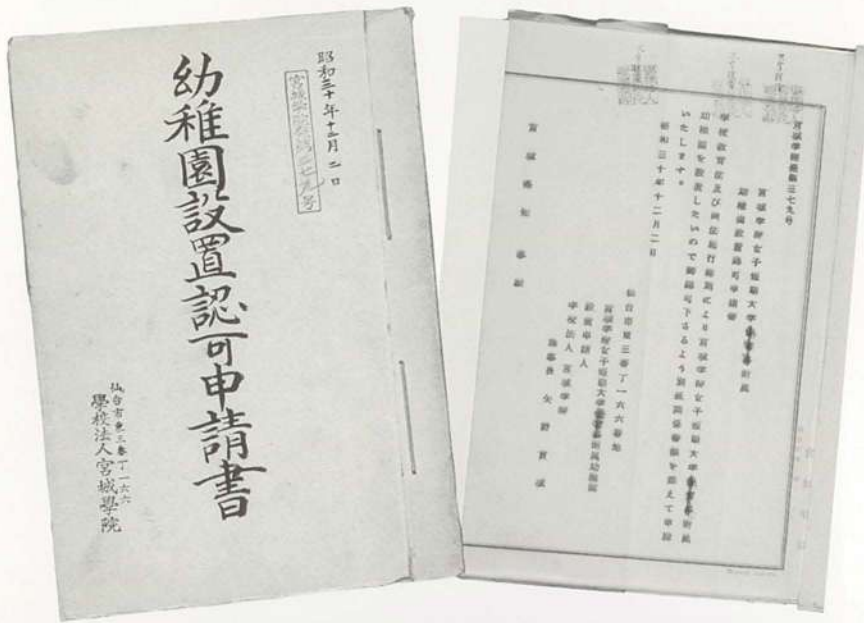 昭和三十年十二月二日
宮城学院発第三七九号
幼稚園設置認可申請書
仙台市東三番丁一六六
學校法人宮城學院
宮城学院発第三七九号
宮城学院女子短期大学附属
幼稚園設置認可申請書
学校教育法及び同法施行細則により宮城学院女子短期大学附属
幼稚園を設置したいので御認可下さるよう別紙関係書類を添えて申請
いたします。
昭和三十年十二月二日
仙台市東三番丁一六六番地
宮城学院女子短期大学附属幼稚園
設置申請人
学校法人 宮城学院
理事長
宮城県知事殿